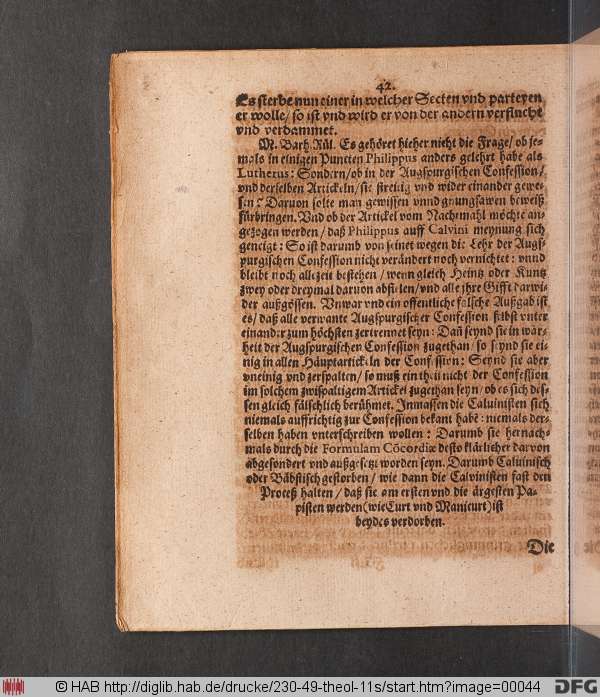 42.
Es sterbe nun einer in welcher Secten vnd parteyen
er wolle / so ist vnd wird er von der andern verflucht
vnd verdammet.
M. Barh. Rül. Es gehöret hieher nicht die Frage / ob je-
mals in einigen Puncten Philippus anders gelehrt habe als
Lutherus: Sondern / ob in der Augspurgischen Confession /
vnd derselben Artickeln / sie streitig vnd wider einander gewe-
sen? Daruon solte man gewissen vnnd gnungsamen beweiß
fürbringen. Vnd ob der Artickel vom Nachtmahl möchte an-
gezogen werden / daß Philippus auff Calvini meynung sich
geneigt: So ist darumb von seinet wegen die Lehr der Augs-
purgischen Confession nicht verändert noch vernichtet: vnnd
bleibt noch allezeit bestehen / wenn gleich Heintz oder Kuntz
zwey oder dreymal daruon abfielen / vnd alle jhre Gifft darwi-
der außgössen. Vnwar vnd ein offentliche falsche Außgab ist
es / daß alle verwante Augspurgischer Confession selbst vnter
einander zum höchsten zertrennet seyn: Dañ seynd sie in war-
heit der Augspurgischen Confession zugethan / so seynd sie ei-
nig in allen Häuptartickeln der Confession: Seynd sie aber
vneinig vnd zerspalten / so muß ein theil nicht der Confession
im solchem zwispaltigem Artickel zugethan seyn / ob es sich des-
sen gleich fälschlich berühmet. Inmassen die Caluinisten sich
niemals auffrichtig zur Confession bekant habē: niemals der-
selben haben vnterschreiben wollen: Darumb sie hernach-
mals durch die Formulam Cōcordiæ desto klärlicher darvon
abgesondert vnd außgesetzt worden seyn. Darumb Caluinisch
oder Bäbstisch gestorben / wie dann die Calvinisten fast den
Proceß halten / daß sie am ersten vnd die ärgesten Pa-
pisten werden (wie Curt vnd Manicurt) ist
beydes verdorben.
Die
© HAB http://diglib.hab.de/drucke/230-49-theol-11s/start.htm?image=00044
DFG